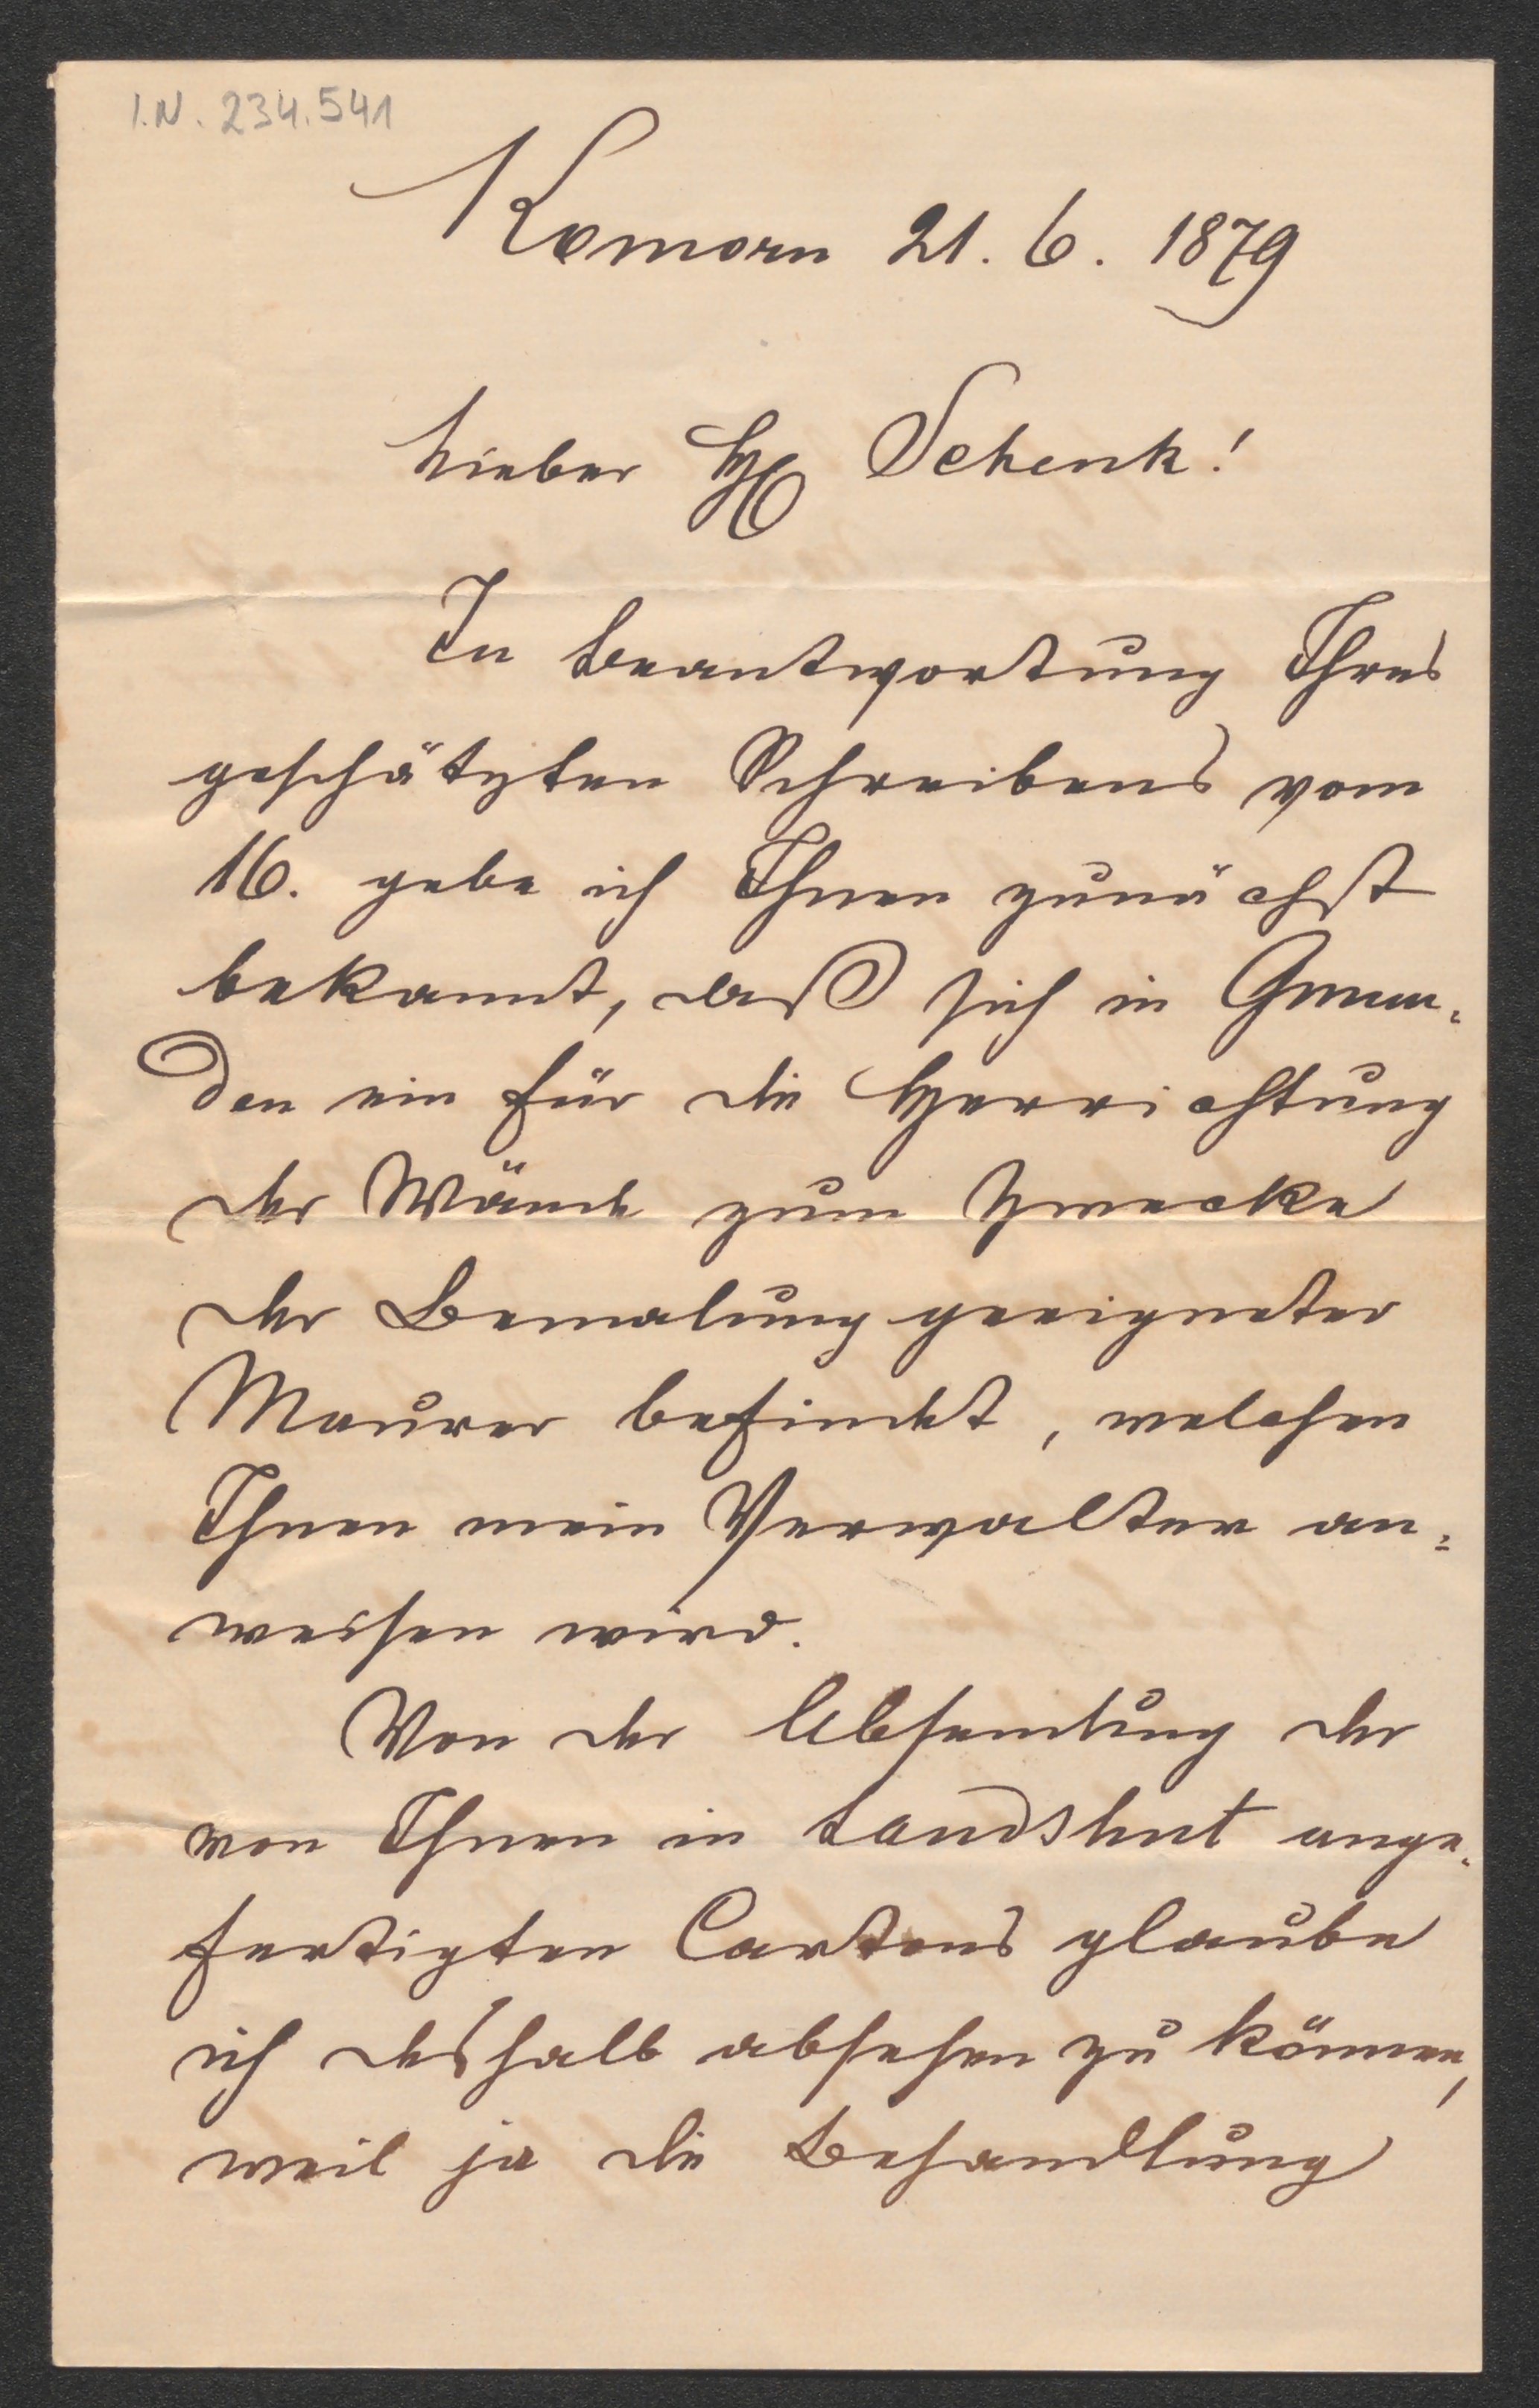 I.N. 234.541
Komorn 21. 6. 1879
Lieber H Schenk!
In Beantwortung Ihres
geschätzten Schreibens vom
16. gebe ich Ihnen zunächst
bekannt, daß sich in Gmun-
den ein für die Herrichtung
der Wände zum Zwecke
der Bemalung geeigneter
Maurer befindet, welchen
Ihnen mein Verwalter an=
weisen wird.
Von der Absendung der
von Ihnen in Landshut ange-
fertigten Cartons glaube
ich deshalb absehen zu können,
weil ja die Behandlung